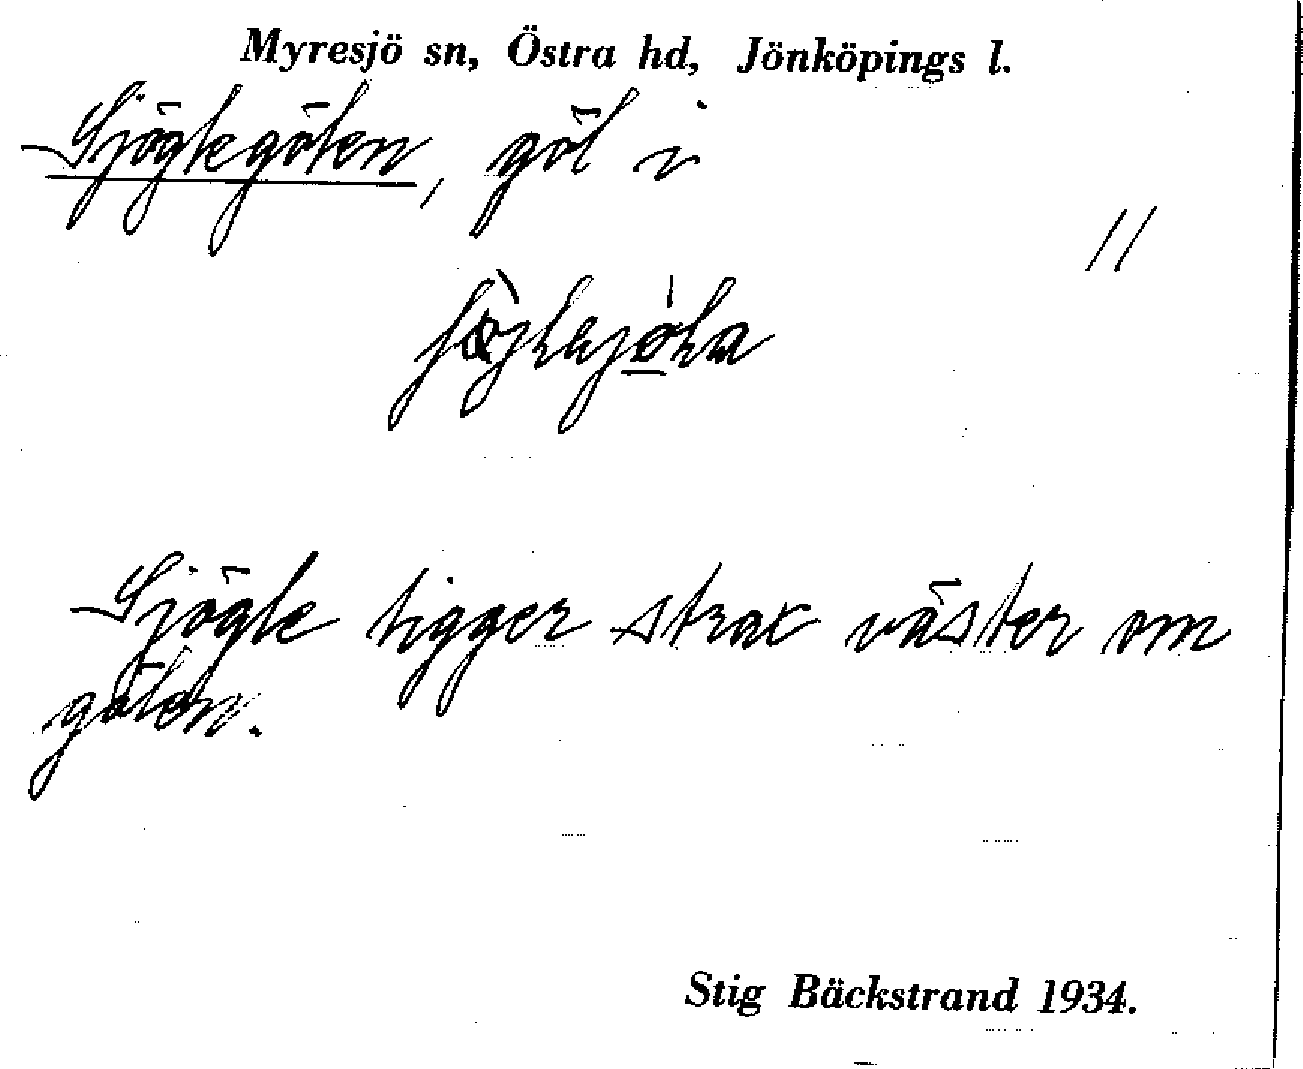 Myresjö sn, Östra hd, Jönköpings l.
Sjöglegölen, göl i
11
Sjögle ligger strax väster om
gölen.
Stig Bäckstrand 1934.